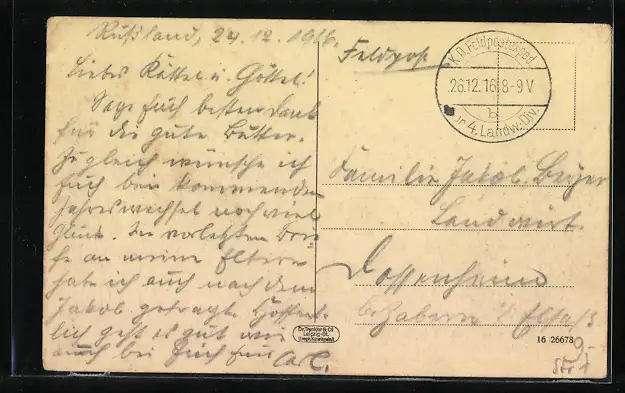 Rußland, 24.12.1916.
Liebes Kättel u. Göttel!
Sage Euch besten Dank
für die gute Butter.
Zugleich wünsche ich
Euch beim kommenden
Jahreswechsel noch viel
Glück. Im vorletzten Brie-
fe an meine Eltern
habe ich auch nach dem
Jakob gefragt. Hoffent-
lich geht es gut wie
auch bei Euch
Feldpost
K.D. Feldpostexped.
26.12.16 8-9V
b
der 4. Landw. Div.
Familie Jakob
Landwirt.
Dossenheim
b. Zabern i/ Elsaß
Dr. Trenkler & Co
Leipzig-St.
16 26678